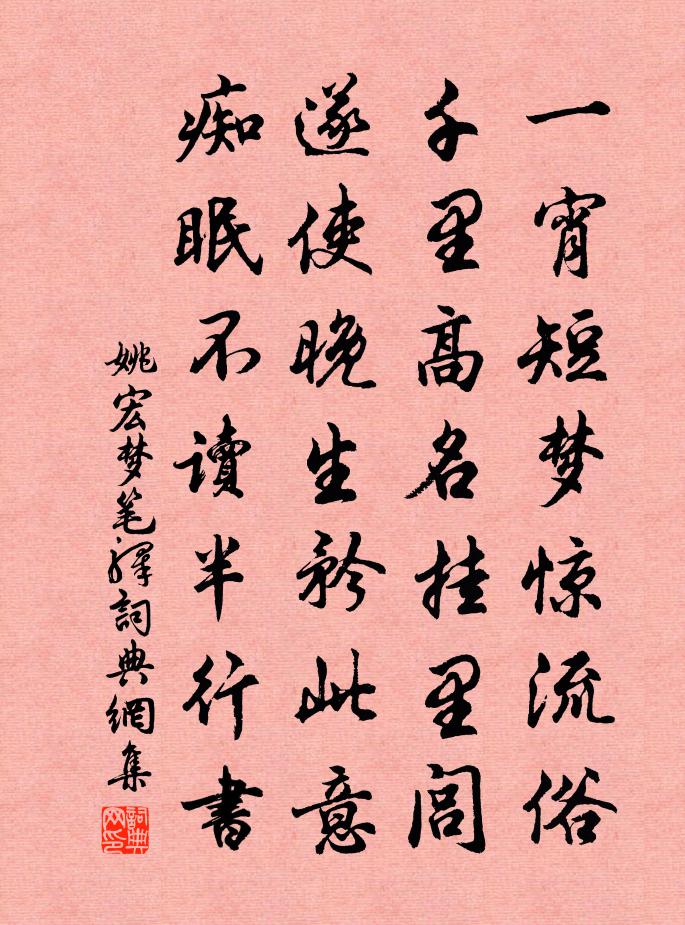 一宵短梦惊流俗
千里高名挂里闾
遂使晚生矜此意
痴眠不读半行書
姚宏梦笔 释詞典網集
詞典网印